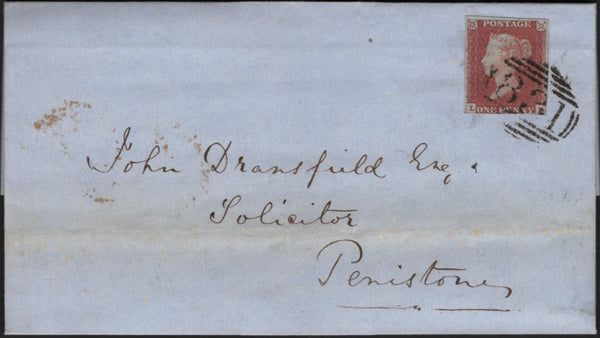 POSTAGE
ONE PENNY
L
831
John Dransfield Esq.
Solicitor
Penistone